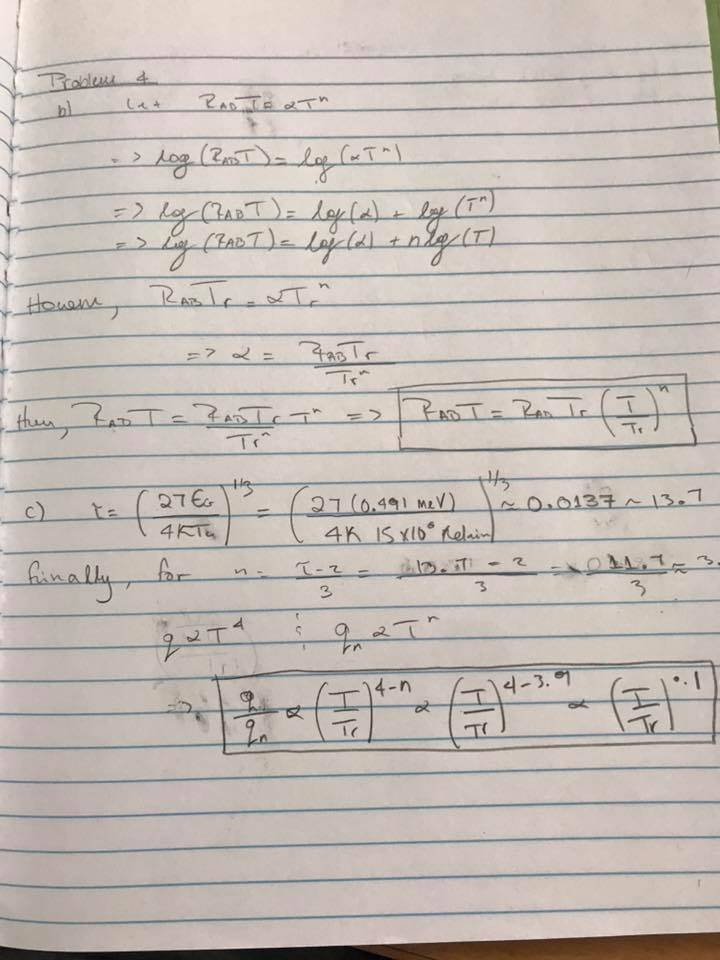 Problem 4
b) Let R_AB T = αT^n
=> log(R_AB T) = log(αT^n)
=> log(R_AB T) = log(α) + log(T^n)
=> log(R_AB T) = log(α) + n log(T)
However, R_AB T_r = αT_r^n
=> α = R_AB T_r / T_r^n
then, R_AB T = R_AB T_r / T_r^n T^n => R_AB T = R_AB T_r (T/T_r)^n
c) τ = (27 E_G / 4KT_)^1/3 = (27 (0.491 MeV) / 4K 15x10^6 Kelvin)^1/3 ≈ 0.0137 ~ 13.7
finally, for n = τ-2 / 3 = 13.7 - 2 / 3 = 11.7 / 3 ≈ 3.
q α T^4 ; q_n α T^n
=> q/q_n α (T/T_r)^4-n α (T/T_r)^4-3.9 α (T/T_r)^0.1